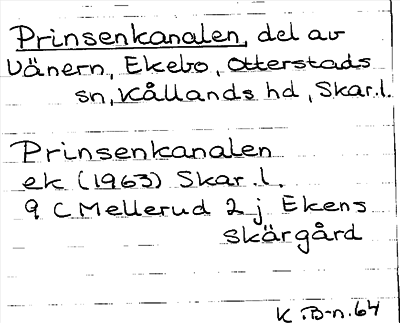 Prinsenkanalen, del av
Vänern, Ekebo, Otterstads
sn, Kållands hd, Skar.l.
Prinsenkanalen
ek (1963) Skar.l.
9 C Mellerud 2 j Ekens
skärgård
K.B-n.64